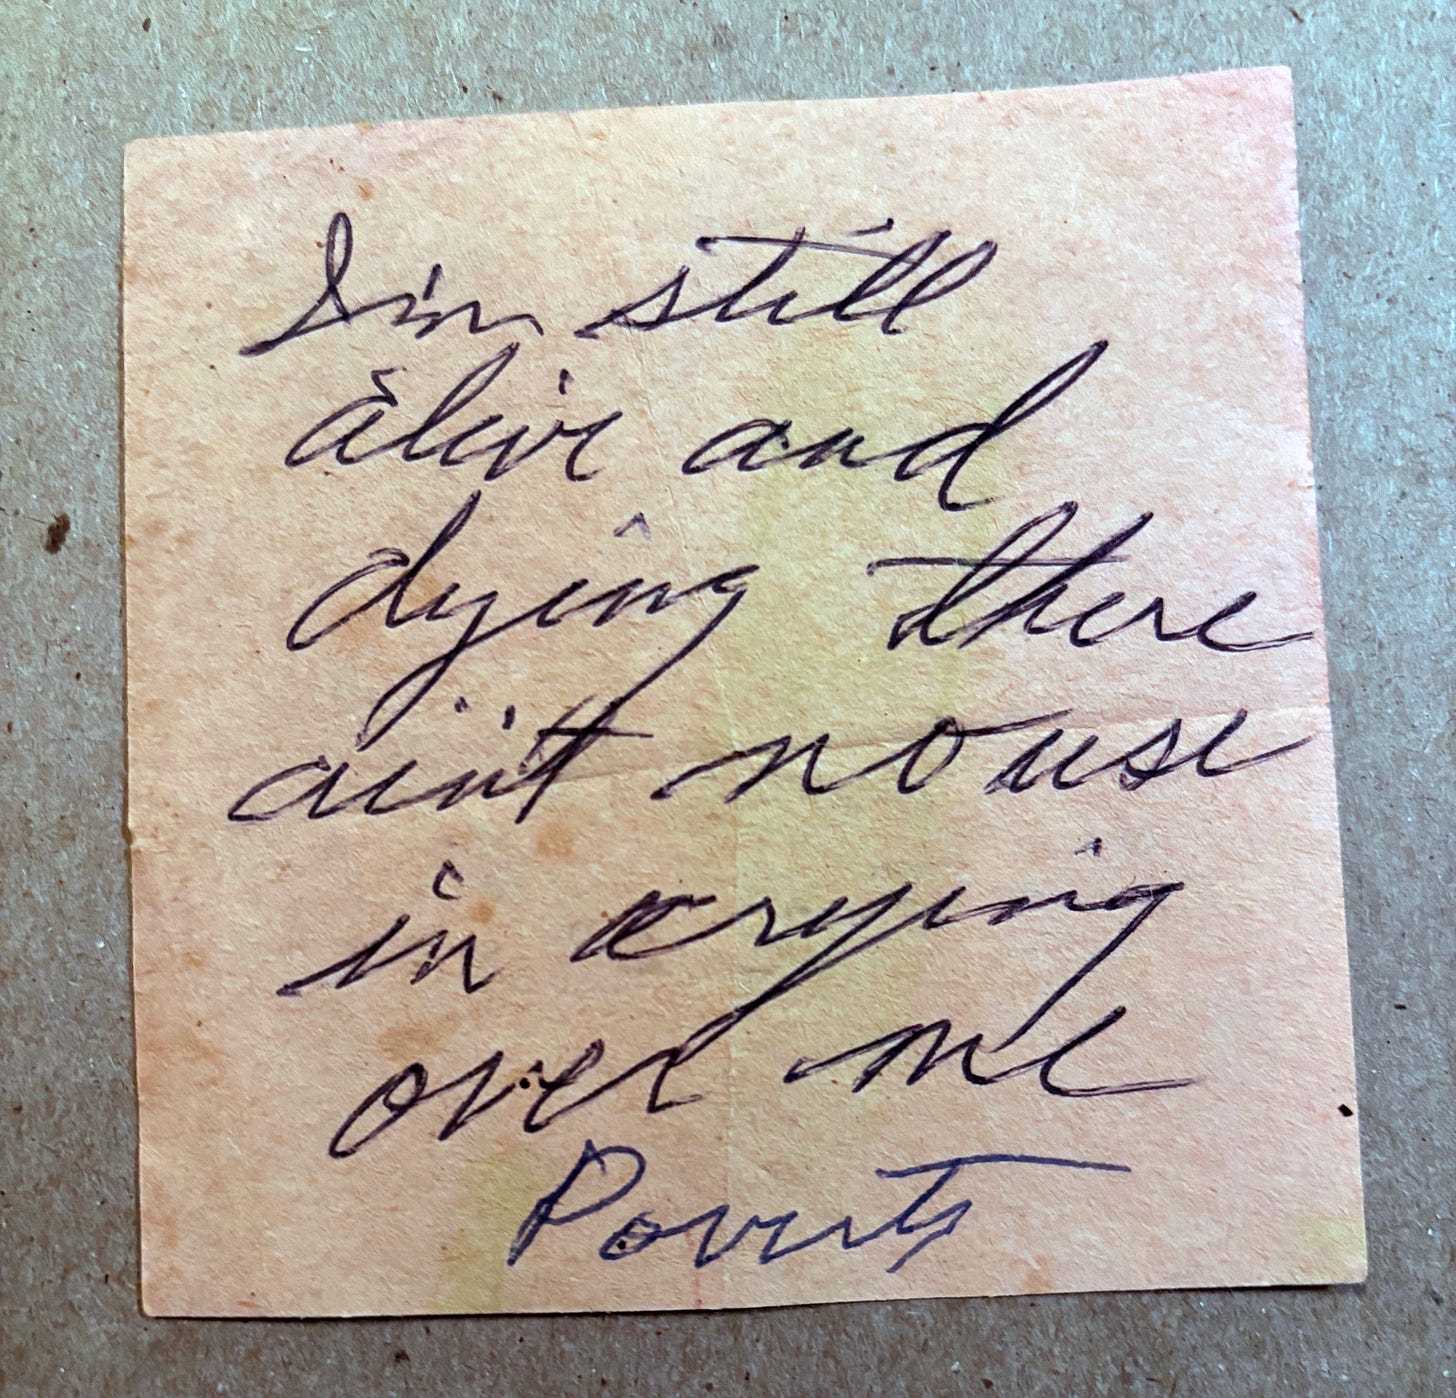 I'm still
alive and
dying there
ain't no use
in crying
over me
Poverty